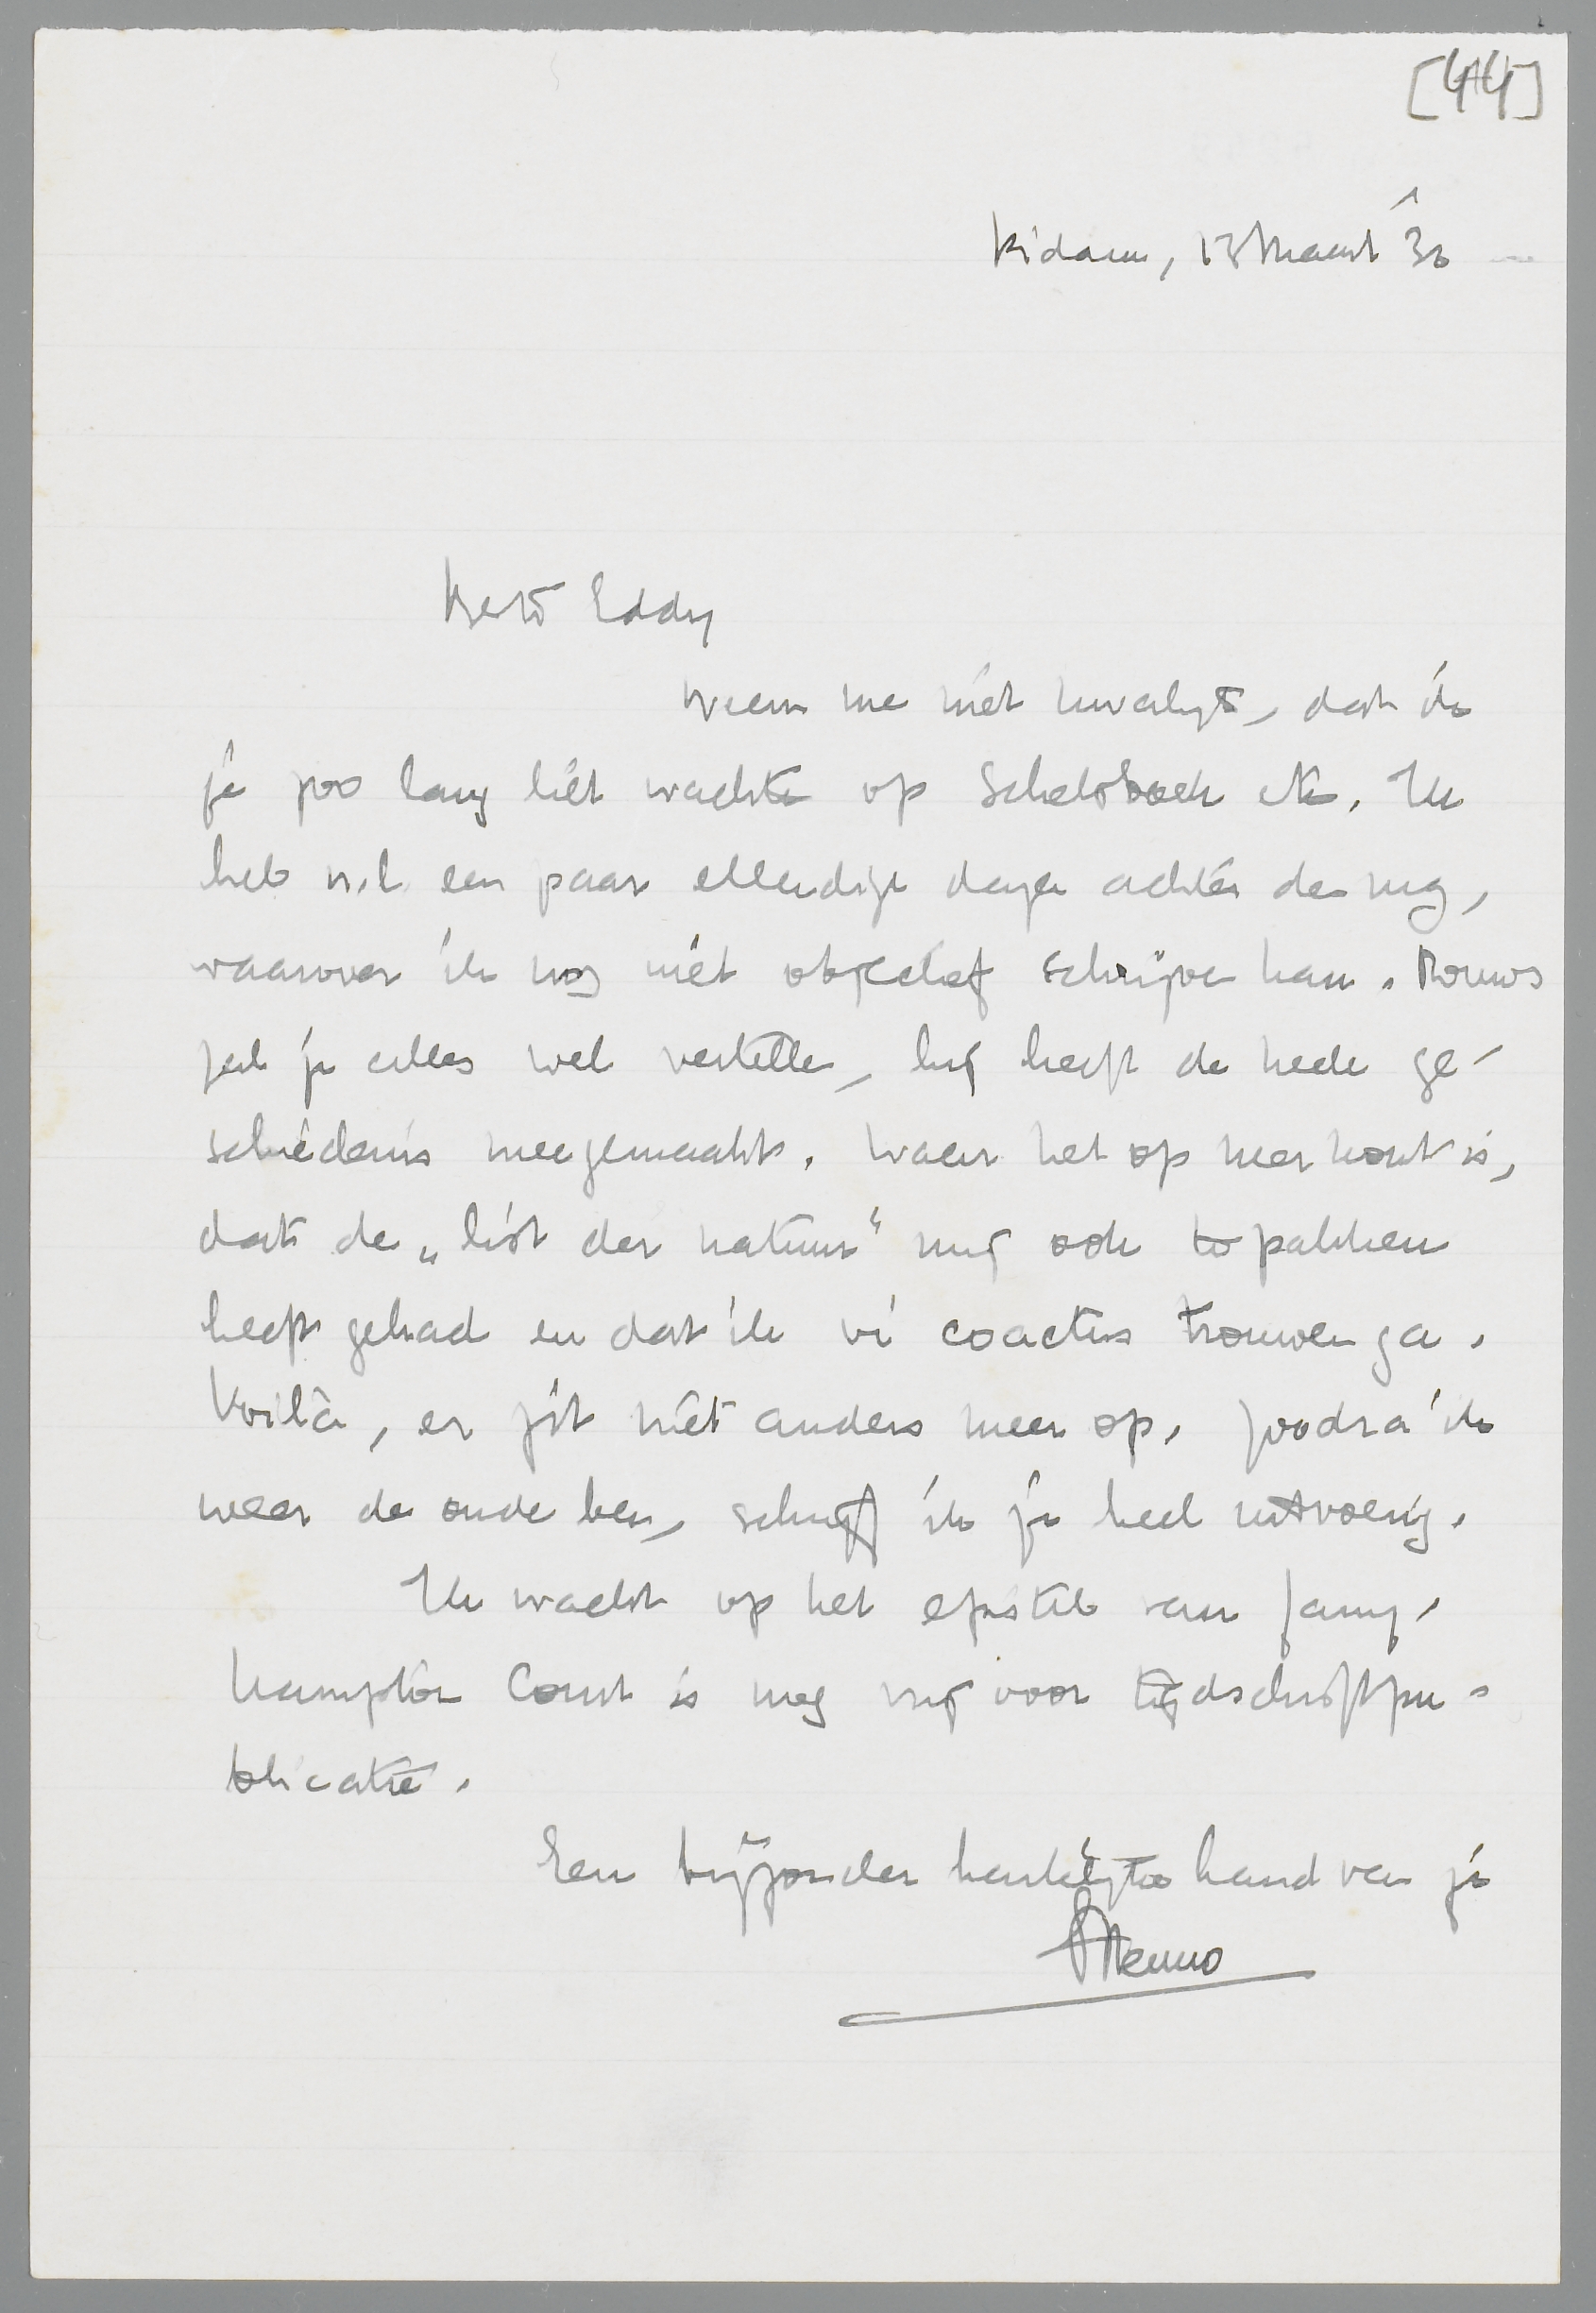 [44]
R'dam, 13 Maart '32
Beste Eddy
Neem me niet kwalijk, dat ik
je zoo lang liet wachten op Scheldboek etc. Ik
heb n.l. een paar ellendige dagen achter den rug,
waarover ik nog niet objectief schrijven kan. Bouws
zal je alles wel vertellen, hij heeft de heele ge-
schiedenis meegemaakt. Waar het op neer komt is,
dat de „list der natuur" mij ook te pakken
heeft gehad en dat ik vi coactus trouwen ga.
Voilà, er zit niet anders meer op. Zoodra ik
weer de oude ben, schrijf ik je heel uitvoerig.
Ik wacht op het epistel van Jany.
Hampton Court is nog vrij voor tijdschriftpu-
blicatie.
Een bijzonder hartelijke hand van je
Menno